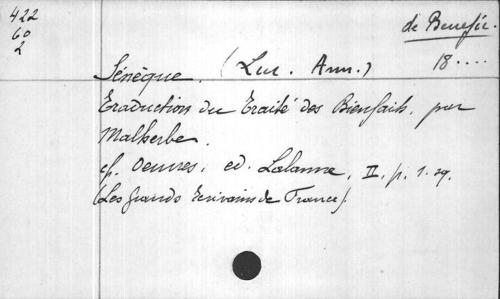 422
60
2
de Benefic.
18....
Sénèque. (Luc. Ann.)
Traduction du Traité des Bienfaits, par
Malherbe.
cf. Oeuvres, ed. Lalanne, II, p. 1. sq.
(Les Grands Ecrivains de France).